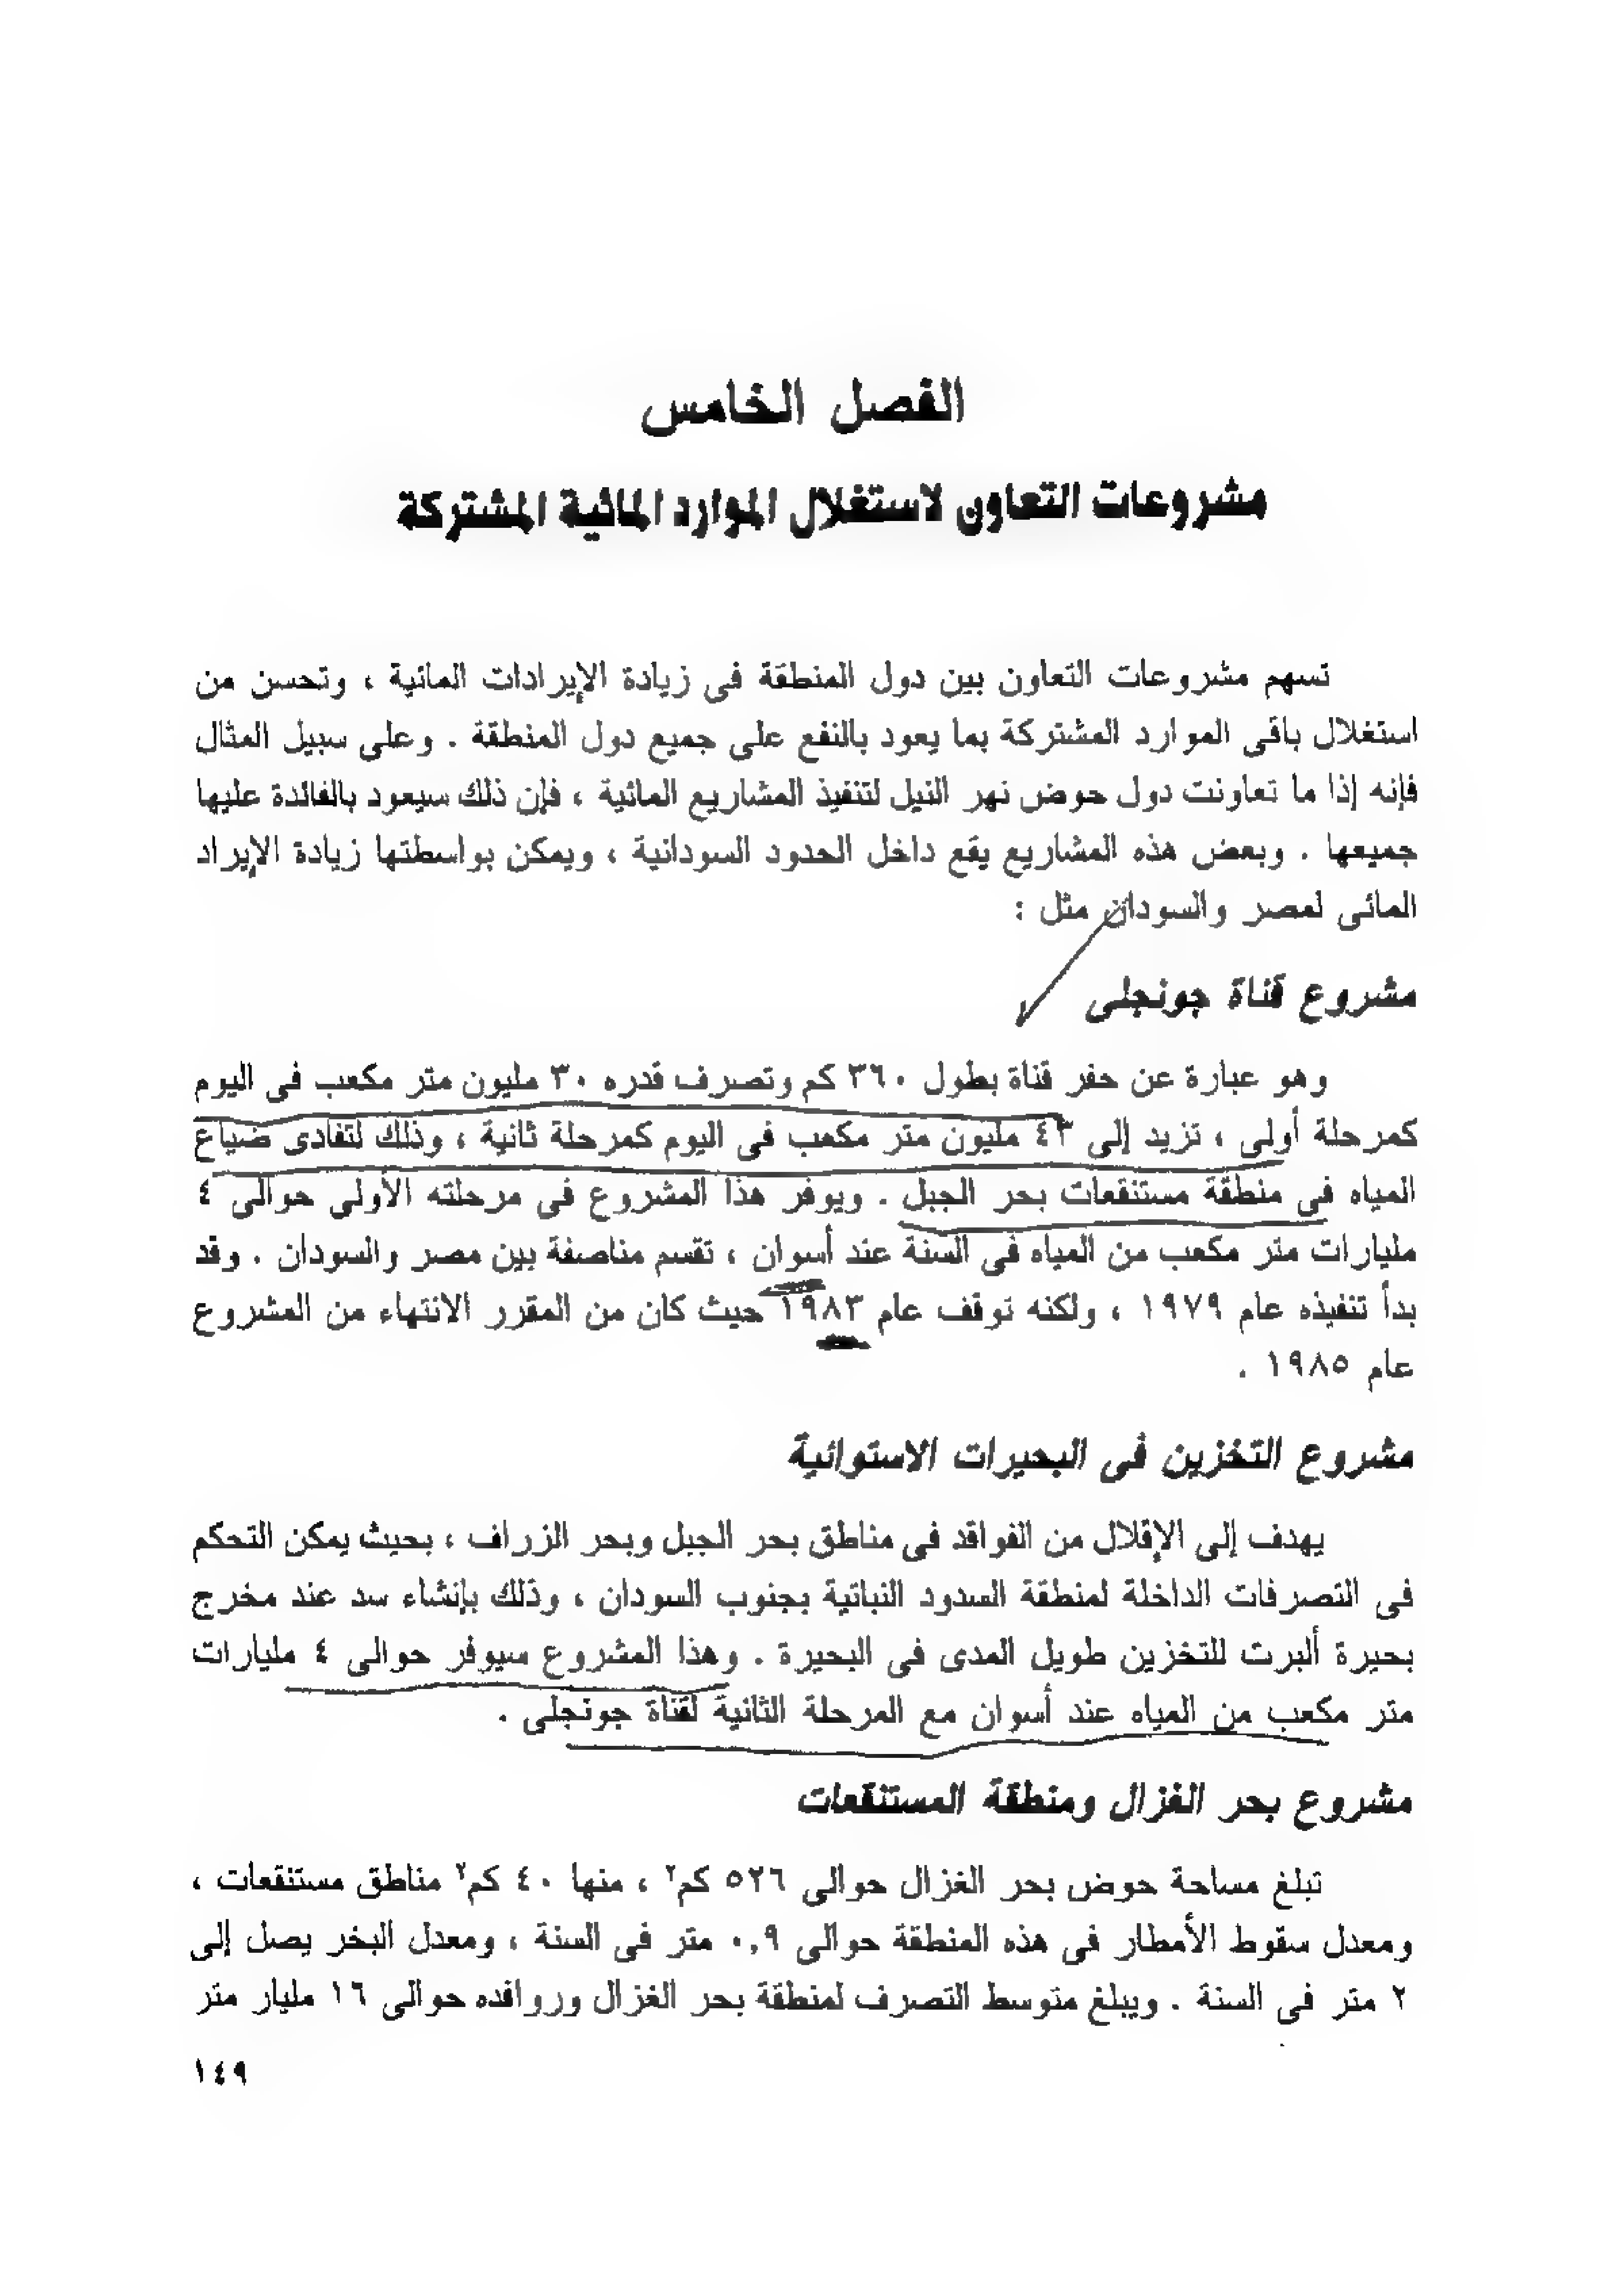 الفصل الخامس
مشروعات التعاون لاستغلال الموارد المائية المشتركة
تسهم مشروعات التعاون بين دول المنطقة فى زيادة الإيرادات المائية ، وتحسن من
استغلال باقى الموارد المشتركة بما يعود بالنفع على جميع دول المنطقة . وعلى سبيل المثال
فإنه إذا ما تعاونت دول حوض نهر النيل لتنفيذ المشاريع المائية ، فإن ذلك سيعود بالفائدة عليها
جميعها . وبعض هذه المشاريع يقع داخل الحدود السودانية ، ويمكن بواسطتها زيادة الإيراد
المائى لمصر والسودان مثل :
مشروع قناة جونجلى
وهو عبارة عن حفر قناة بطول ٣٦٠ كم وتصرف قدره ٣٠ مليون متر مكعب فى اليوم
كمرحلة أولى ، تزيد إلى ٤٣ مليون متر مكعب فى اليوم كمرحلة ثانية ، وذلك لتفادى ضياع
المياه فى منطقة مستنقعات بحر الجبل . ويوفر هذا المشروع فى مرحلته الأولى حوالى ٤
مليارات متر مكعب من المياه فى السنة عند أسوان ، تقسم مناصفة بين مصر والسودان . وقد
بدأ تنفيذه عام ١٩٧٩ ، ولكنه توقف عام ١٩٨٣ حيث كان من المقرر الانتهاء من المشروع
عام ١٩٨٥ .
مشروع التخزين فى البحيرات الاستوائية
يهدف إلى الإقلال من الفواقد فى مناطق بحر الجبل وبحر الزراف ، بحيث يمكن التحكم
فى التصرفات الداخلة لمنطقة السدود النباتية بجنوب السودان ، وذلك بإنشاء سد عند مخرج
بحيرة ألبرت للتخزين طويل المدى فى البحيرة . وهذا المشروع سيوفر حوالى ٤ مليارات
متر مكعب من المياه عند أسوان مع المرحلة الثانية لقناة جونجلى .
مشروع بحر الغزال ومنطقة المستنقعات
تبلغ مساحة حوض بحر الغزال حوالى ٥٢٦ كم٢ ، منها ٤٠ كم٢ مناطق مستنقعات ،
ومعدل سقوط الأمطار فى هذه المنطقة حوالى ٠,٩ متر فى السنة ، ومعدل البخر يصل إلى
٢ متر فى السنة . ويبلغ متوسط التصرف لمنطقة بحر الغزال وروافده حوالى ١٦ مليار متر
١٤٩